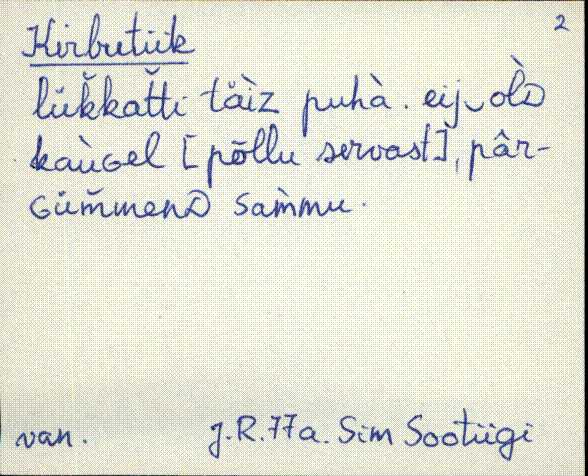 2
Kirbutiik
lük̆kat̆ti tä̀iz puhà. eij‿olD
kaùGel [põllu servast], pâr-
Güm̆menD sam̀mu.
van. J.R.77a. Sim Sootiigi